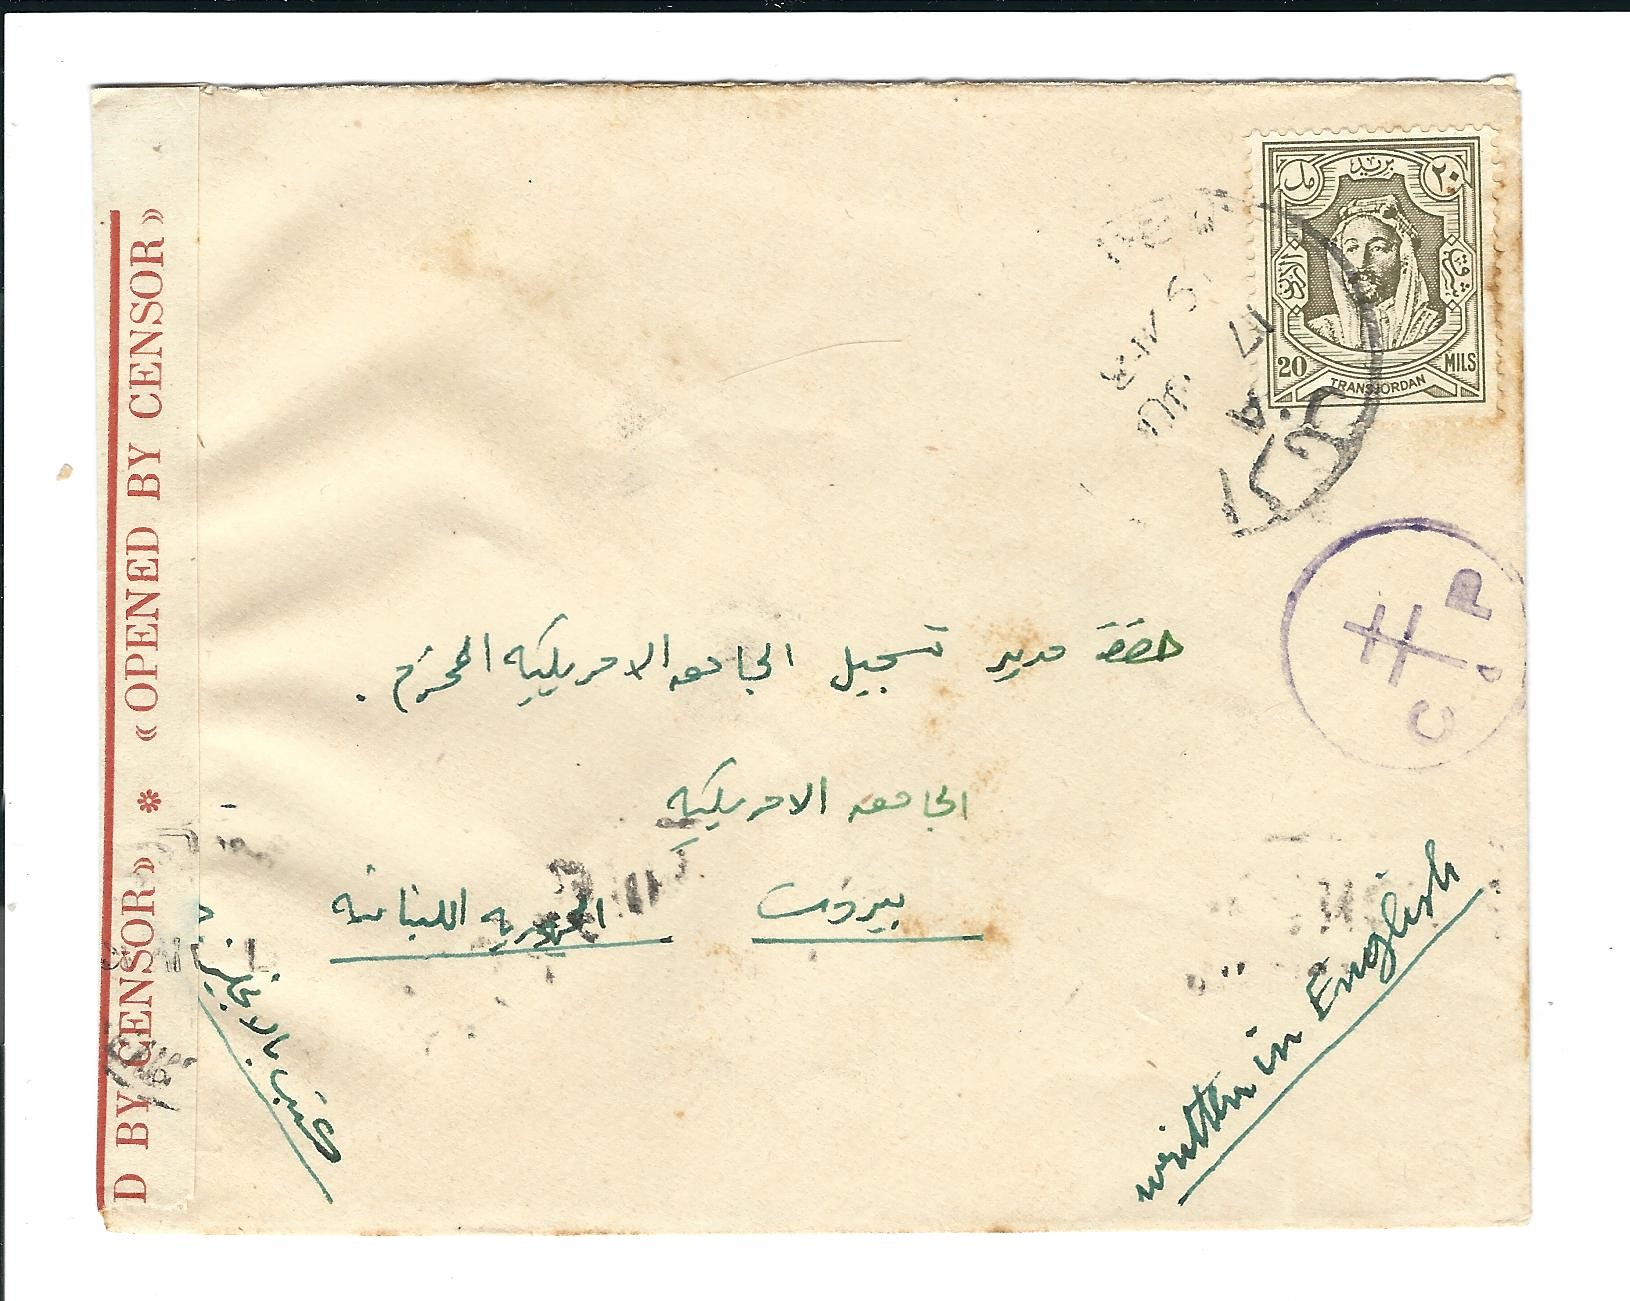 بريد
٢٠
مل
شرقي
الاردن
20 MILS
TRANSJORDAN
الكرك
C P
حضرة مدير تسجيل الجامعه الامريكيه المحترم .
الجامعه الامريكيه
بيروت الجمهوريه اللبنانيه
written in English
بالانجليزيه
D BY CENSOR» * «OPENED BY CENSOR»